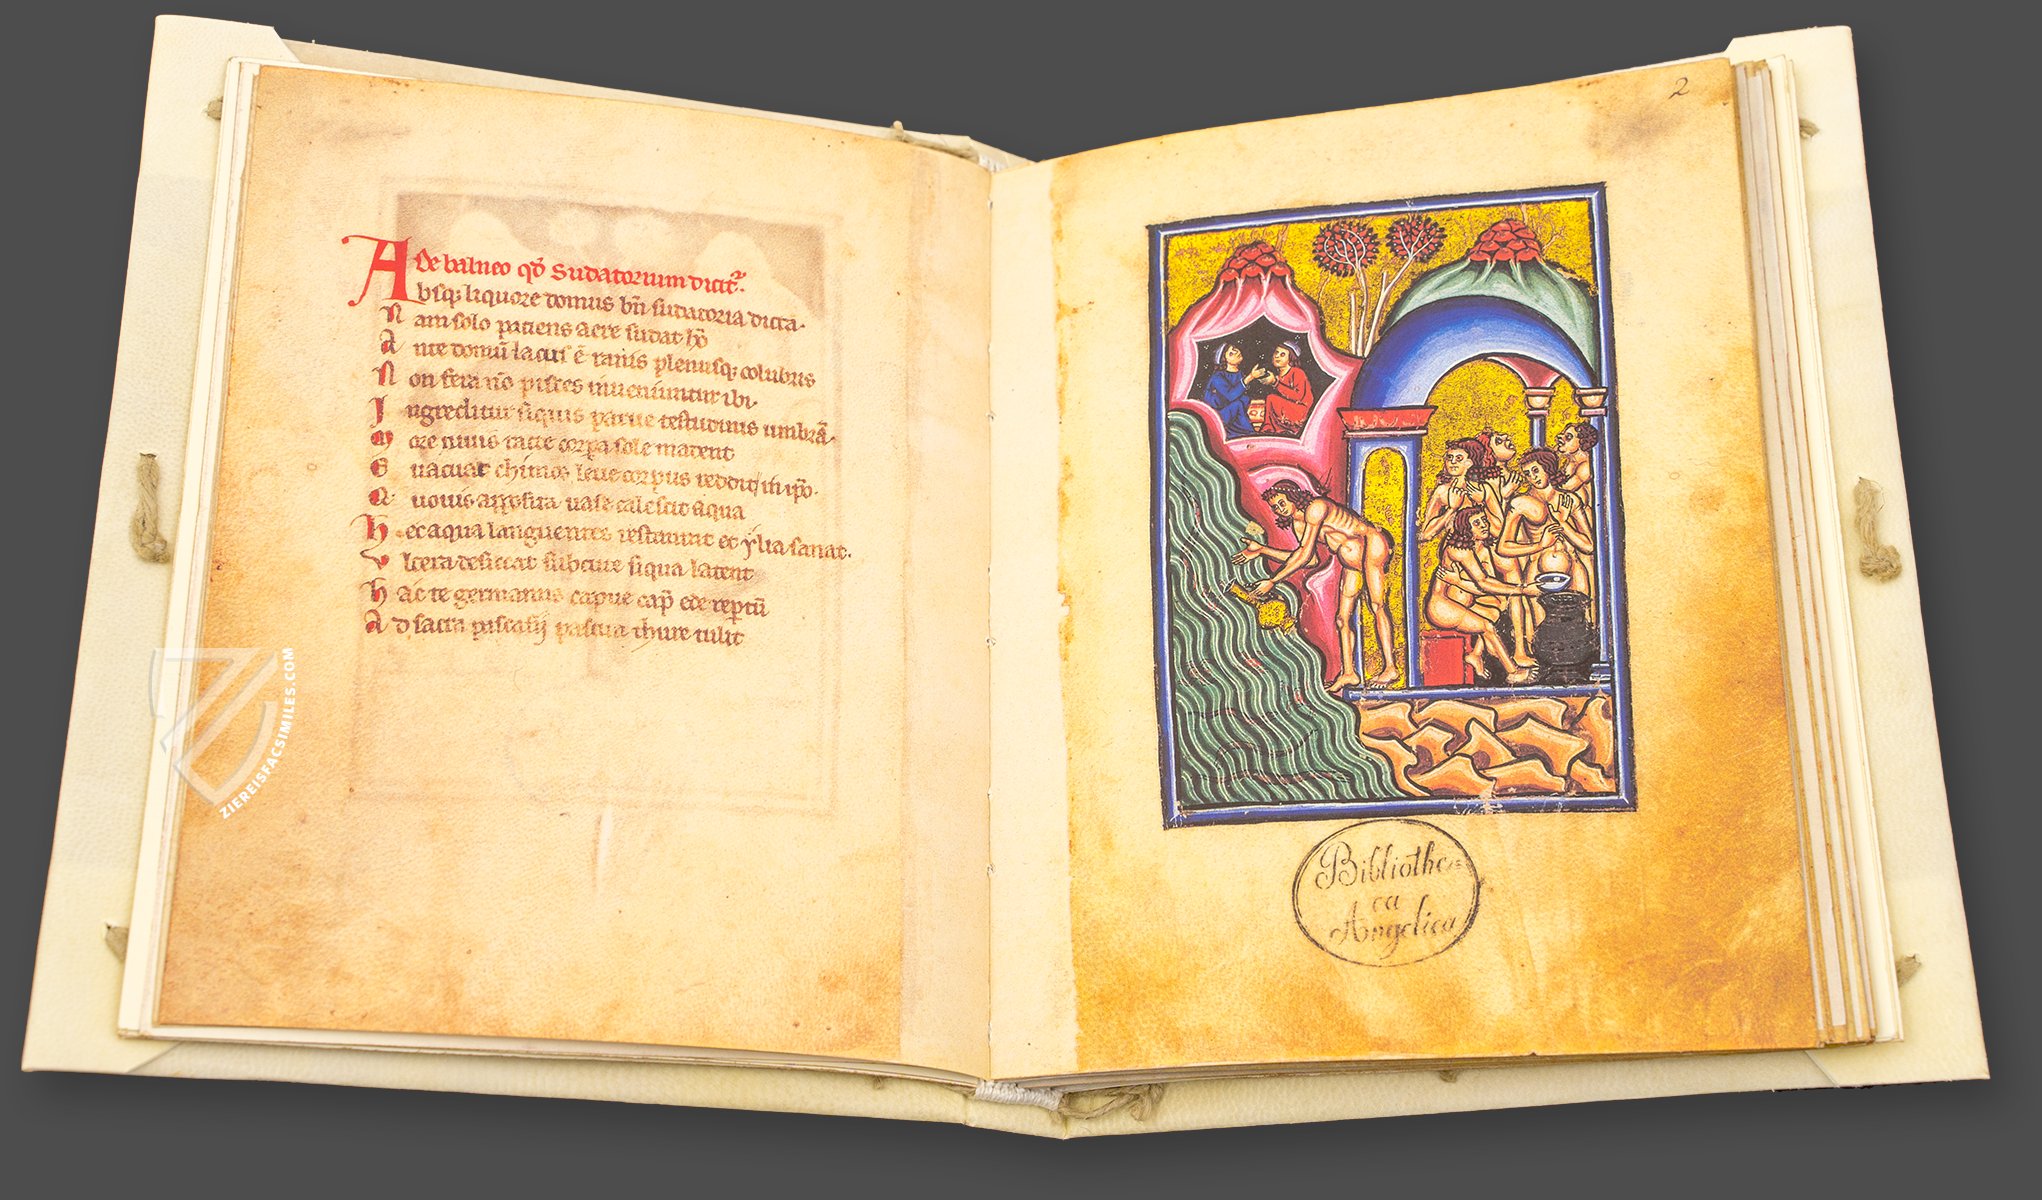 De balneo qđ Sudatorium dicit̃.
Absq; liquore domus bñ sudatoria dicta.
Nam solo patiens aere sudat hõ
Ante domũ lacus ẽ ranis plenusq; colubris
Non fera nõ pisces inveniuntur ibi.
Ingreditur siquis parue testudinis umbrã.
More niuis tacte corpa sole madent
Euacuat chimos leue corpus reddit in ipo.
Quouis apposita uase calescit aqua
Hec aqua languentes restaurat et ylia sanat.
Vlcera desiccat subcute siqua latent
Hac te germanus capue cap̃ ede reptũ
Ad sacra pascasij pascua thure tulit
2
Bibliothe
ca
Angelica
ZIEREISFACSIMILES.COM